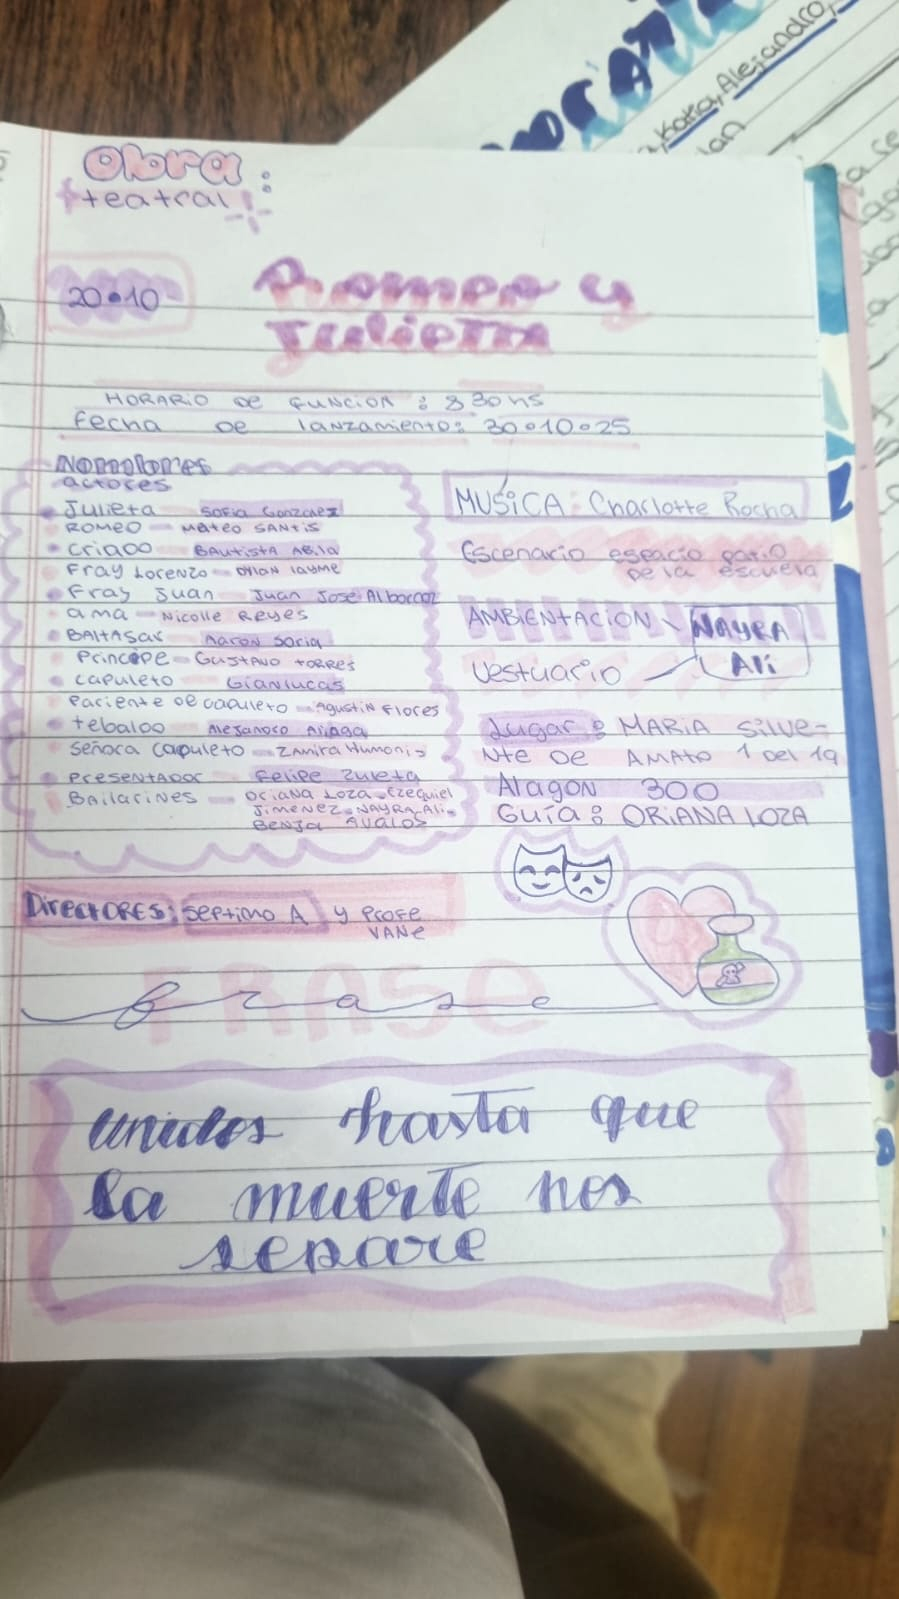 Obra :
teatral
20•10
Romeo y
Julieta
HORARIO DE FUNCION : 8 30 hs
Fecha DE lanzamiento: 30•10•25
Nombres
actores
Julieta Sofia Gonzalez
ROMEO - MATEO SANTIS
Criado BAUTISTA
Fray Lorenzo - Dylan Layme
Fray Juan Juan Jose Albornoz
ama - Nicolle Reyes
BALTASAR Aaron Soria
Principe - GUSTAVO TORRES
Capuleto Gianlucas
Pariente de capuleto - Agustin Flores
Tebaldo - Alejandro
Señora Capuleto - ZAMIRA
PRESENTADOR Felipe Zuleta
Bailarines - Oriana Loza - Ezequiel
JIMENEZ - NAYRA - Ali -
BENJA AVALOS
MUSICA : Charlotte Rocha
Escenario espacio patio
de la escuela
AMBIENTACION NAYRA
Vestuario Ali
Lugar : MARIA SILVE-
Nte DE AMATO 1 del 19
Alagon 300
Guía : ORIANA LOZA
DIRECTORES: SEPTIMO A y PROFE
VANE
FRASE
frase
unidos hasta que
la muerte nos
separe
Katia, Alejandro,